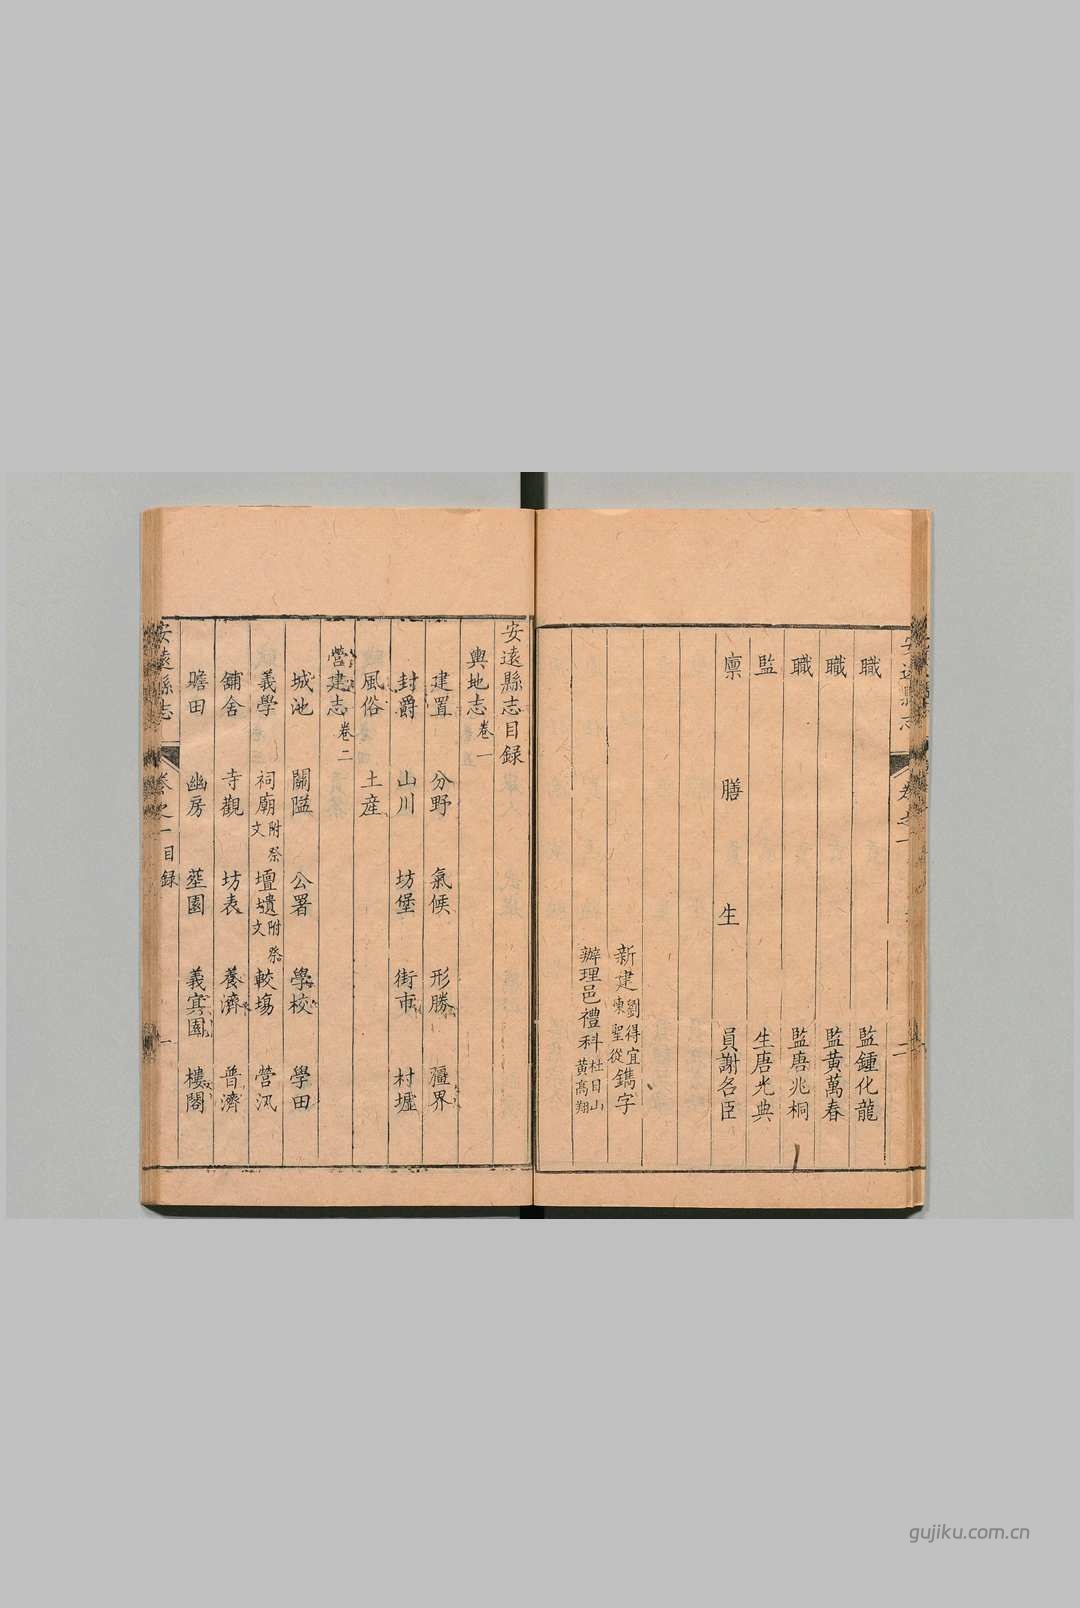 職 監鍾化龍
職 監黃萬春
職 監唐兆桐
監 生唐光典
廩膳生員謝名臣
新建劉得宜陳聖從鐫字
辦理邑禮科杜日山黃高翔
安遠縣志目錄
輿地志卷一
建置 分野 氣候 形勝 疆界
封爵 山川 坊堡 街市 村墟
風俗 土產
營建志卷二
城池 關隘 公署 學校 學田
義學 祠廟附祭文 壇壝附祭文 較塲 營汛
鋪舍 寺觀 坊表 養濟 普濟
贍田 幽房 塋園 義寘園 樓閣
安遠縣志 卷之一目錄 一
gujiku.com.cn